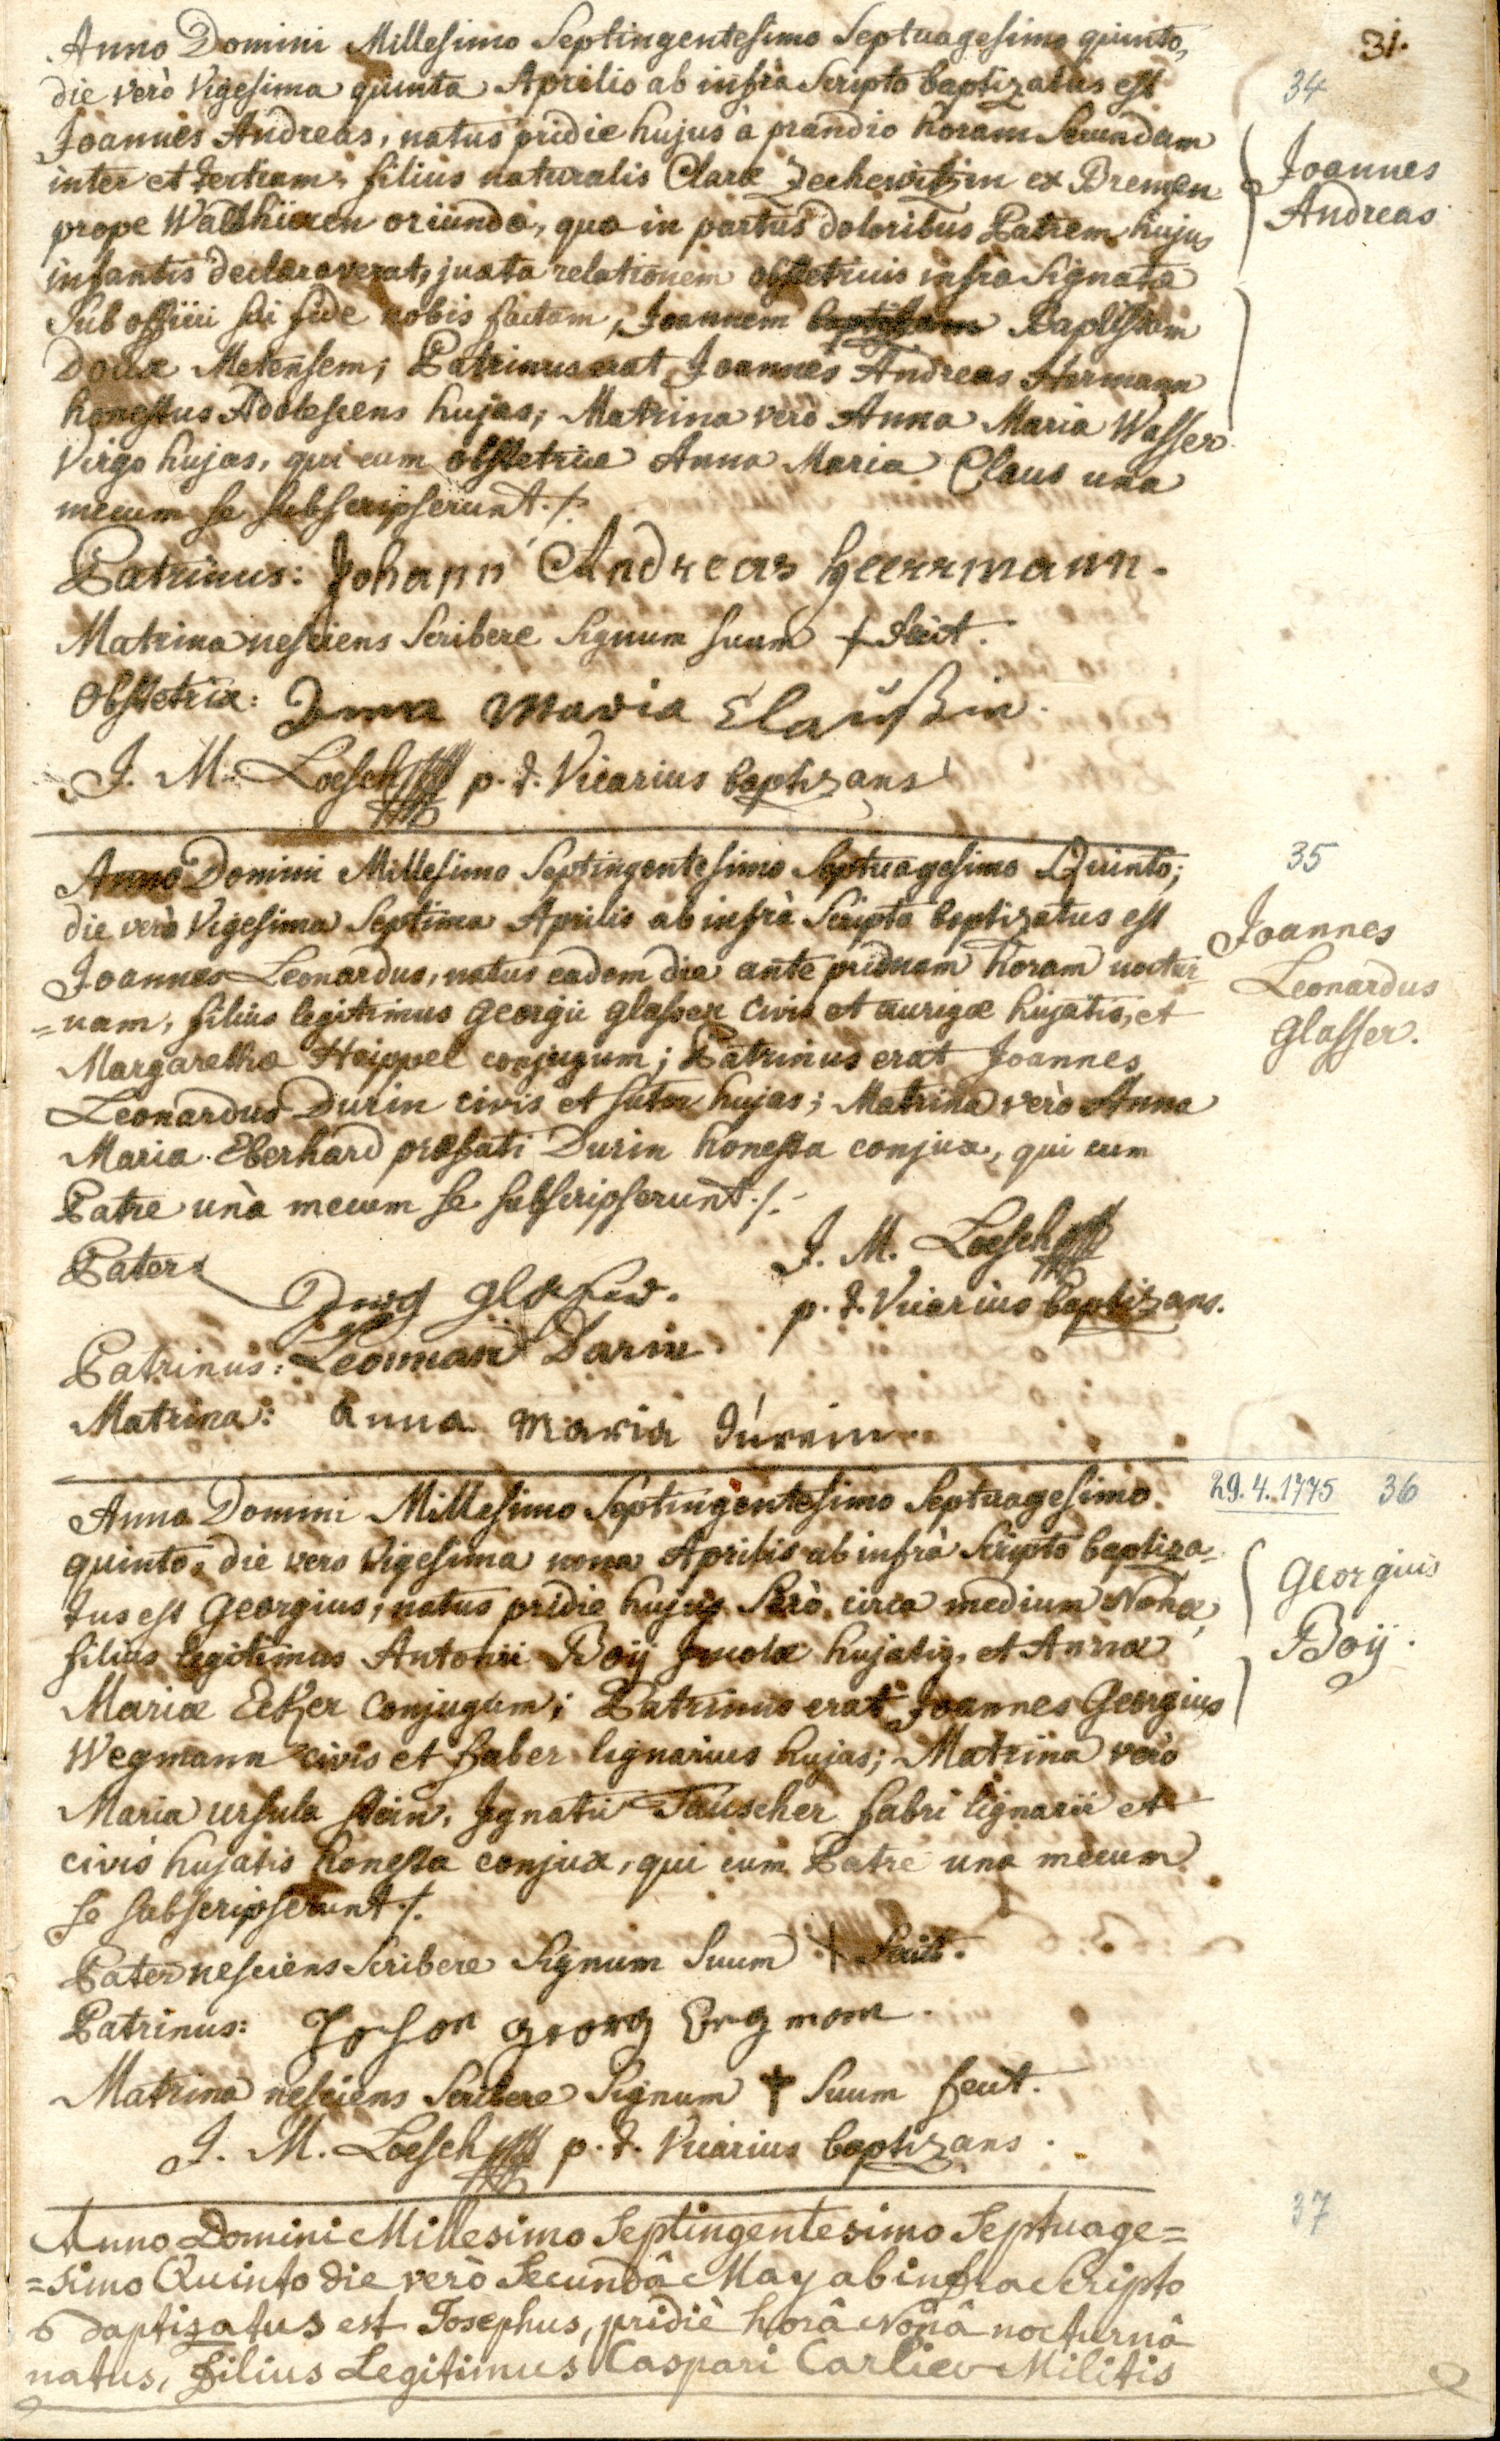 31.
Anno Domini Millesimo Septingentesimo Septuagesimo quinto,
die verò Vigesima quinta Aprilis ab infrà Scripto baptizatus est
Joannes Andreas, natus pridie hujus à prandio horam Secundam
inter et tertiam, filius naturalis Claræ ex Bremen
prope oriundæ, quæ in partus doloribus Patrem hujus
infantis declaraverat, juxta relationem obstetricis infra Signatæ
Sub officii sui fide nobis factam, Joannem Baptistam
Metensem; Patrinus erat Joannes Andreas Hermann
honestus Adolescens hujas; Matrina verò Anna Maria Wasser
Virgo hujas, qui cum obstetrice Anna Maria Claus una
mecum se subscripserunt ./.
34
Joannes
Andreas
Patrinus: Johann Andreas Heerrmann.
Matrina nesciens Scribere Signum suum + fecit.
Obstetrix: Anna Maria Claußin.
J. M. Loesch p. t. Vicarius baptizans
Anno Domini Millesimo Septingentesimo Septuagesimo Quinto;
die verò Vigesima Septima Aprilis ab infrà Scripto baptizatus est
Joannes Leonardus, natus eadem die ante primam horam noctur-
=nam, filius legitimus Georgii Glasser Civis et aurigæ hujatis, et
Margarethæ Heippel conjugum; Patrinus erat Joannes
Leonardus Durin civis et sutor hujas; Matrina verò Anna
Maria Eberhard præfati Durin honesta conjux, qui cum
Patre unà mecum se subscripserunt ./.
35
Joannes
Leonardus
Glasser.
Pater:
J. M. Loesch
p. t. Vicarius baptizans.
Patrinus:
Matrina: Anna Maria Dúrein.
29.4.1775 36
Anno Domini Millesimo Septingentesimo Septuagesimo
quinto, die vero Vigesima nona Aprilis ab infrà Scripto baptiza-
tus est Georgius, natus pridie hujus Serò, circa medium Nonæ,
filius legitimus Antonii Boij Incolæ hujatis, et Annæ
Mariæ Ecker Conjugum; Patrinus erat Joannes Georgius
Wegmann civis et faber lignarius hujas; Matrina verò
Maria Ursula Stein, Ignatii Tauscher fabri lignarii et
civis hujatis honesta conjux, qui cum Patre una mecum
se subscripserunt ./.
Georgius
Boij.
Pater nesciens Scribere Signum Suum + fecit.
Patrinus: Johan Georg
Matrina nesciens Scribere Signum + Suum fecit.
J. M. Loesch p. t. Vicarius baptizans.
37
Anno Domini Millesimo Septingentesimo Septuage=
=simo Quinto die verò Secundâ May ab infra Scripto
baptizatus est Josephus, pridiè horâ Nonâ nocturnâ
natus, filius Legitimus Caspari Carlier Militis